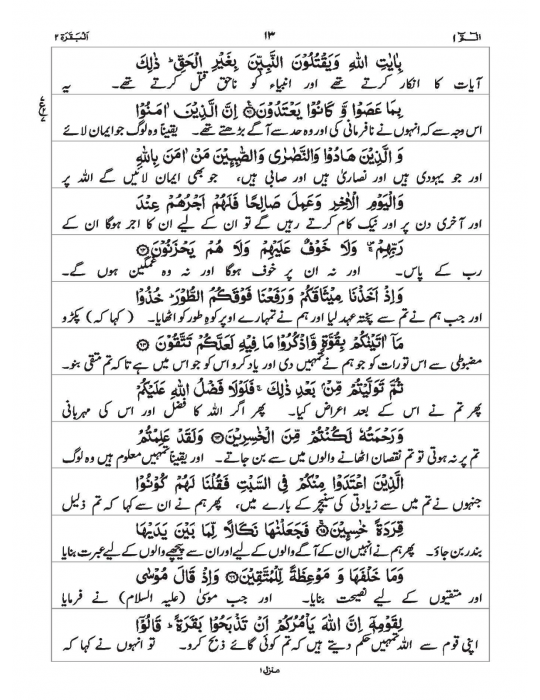 الٓمّٓ ١ ١٣ اَلْبَقَرَة ٢
بِاٰيٰتِ اللّٰهِ وَيَقْتُلُوْنَ النَّبِيّٖنَ بِغَيْرِ الْحَقِّ ؕ ذٰلِكَ
آیات کا انکار کرتے تھے اور انبیاء کو ناحق قتل کرتے تھے۔ یہ
بِمَا عَصَوْا وَّ كَانُوْا يَعْتَدُوْنَ ﴿٦١﴾ اِنَّ الَّذِيْنَ اٰمَنُوْا
اس وجہ سے کہ انہوں نے نافرمانی کی اور وہ حد سے آگے بڑھتے تھے۔ یقیناً وہ لوگ جو ایمان لائے
وَ الَّذِيْنَ هَادُوْا وَالنَّصٰرٰى وَالصّٰبِـِٕيْنَ مَنْ اٰمَنَ بِاللّٰهِ
اور جو یہودی ہیں اور نصاریٰ ہیں اور صابی ہیں، جو بھی ایمان لائیں گے اللہ پر
وَالْيَوْمِ الْاٰخِرِ وَعَمِلَ صَالِحًا فَلَهُمْ اَجْرُهُمْ عِنْدَ
اور آخری دن پر اور نیک کام کرتے رہیں گے تو ان کے لیے ان کا اجر ہوگا ان کے
رَبِّهِمْ ۚ وَلَا خَوْفٌ عَلَيْهِمْ وَلَا هُمْ يَحْزَنُوْنَ ﴿٦٢﴾
رب کے پاس۔ اور نہ ان پر خوف ہوگا اور نہ وہ غمگین ہوں گے۔
وَاِذْ اَخَذْنَا مِيْثَاقَكُمْ وَرَفَعْنَا فَوْقَكُمُ الطُّوْرَ ؕ خُذُوْا
اور جب ہم نے تم سے پختہ عہد لیا اور ہم نے تمہارے اوپر کوہِ طور کو اٹھایا۔ ( کہا کہ) پکڑو
مَاۤ اٰتَيْنٰكُمْ بِقُوَّةٍ وَّاذْكُرُوْا مَا فِيْهِ لَعَلَّكُمْ تَتَّقُوْنَ ﴿٦٣﴾
مضبوطی سے اس تورات کو جو ہم نے تمہیں دی اور یاد کرو اس کو جو اس میں ہے تاکہ تم متقی بنو۔
ثُمَّ تَوَلَّيْتُمْ مِّنْۢ بَعْدِ ذٰلِكَ ۚ فَلَوْلَا فَضْلُ اللّٰهِ عَلَيْكُمْ
پھر تم نے اس کے بعد اعراض کیا۔ پھر اگر اللہ کا فضل اور اس کی مہربانی
وَرَحْمَتُهٗ لَكُنْتُمْ مِّنَ الْخٰسِرِيْنَ ﴿٦٤﴾ وَلَقَدْ عَلِمْتُمُ
تم پر نہ ہوتی تو تم نقصان اٹھانے والوں میں سے بن جاتے۔ اور یقیناً تمہیں معلوم ہیں وہ لوگ
الَّذِيْنَ اعْتَدَوْا مِنْكُمْ فِى السَّبْتِ فَقُلْنَا لَهُمْ كُوْنُوْا
جنہوں نے تم میں سے زیادتی کی سنیچر کے بارے میں، پھر ہم نے ان سے کہا کہ تم ذلیل
قِرَدَةً خٰسِـِٕيْنَ ﴿٦٥﴾ فَجَعَلْنٰهَا نَكَالًا لِّمَا بَيْنَ يَدَيْهَا
بندر بن جاؤ۔ پھر ہم نے انہیں ان کے آگے والوں کے لیے اور ان سے پیچھے والوں کے لیے عبرت بنایا
وَمَا خَلْفَهَا وَ مَوْعِظَةً لِّلْمُتَّقِيْنَ ﴿٦٦﴾ وَاِذْ قَالَ مُوْسٰى
اور متقیوں کے لیے نصیحت بنایا۔ اور جب موسیٰ (علیہ السلام) نے فرمایا
لِقَوْمِهٖۤ اِنَّ اللّٰهَ يَاْمُرُكُمْ اَنْ تَذْبَحُوْا بَقَرَةً ؕ قَالُوْۤا
اپنی قوم سے اللہ تمہیں حکم دیتے ہیں کہ تم کوئی گائے ذبح کرو۔ تو انہوں نے کہا کہ
منزل ١